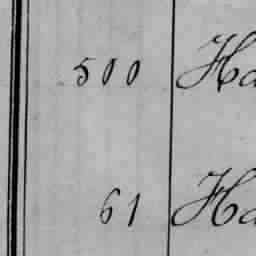 500 Ha
61 Ha